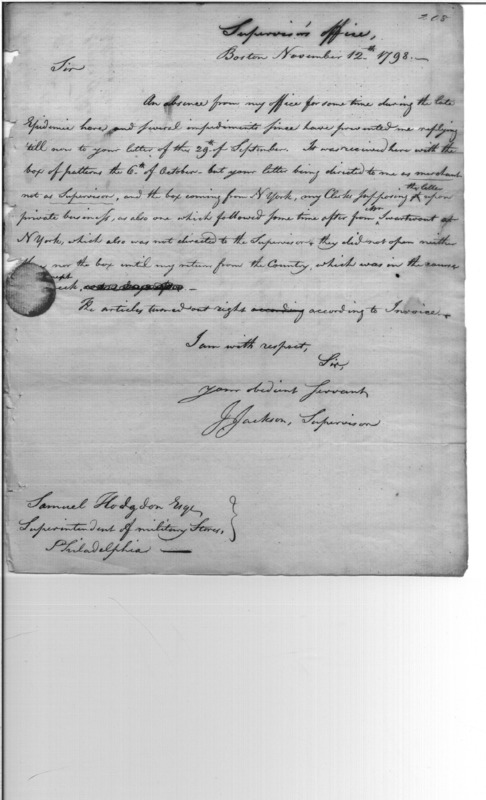 208
Supervisor's office,
Boston November 12th 1798.—
Sir
An absence from my office for some time during the late
Epidemic here, and several impediments since have prevented me replying
till now to your letter of the 29th of September. It was received here with the
box of patterns the 6th of October – but your letter being directed to me as merchant
not as Supervisor, and the box coming from N York, my Clerks supposing the letter upon
private business, as also one which followed some time after from Swartwout at
N York, which also was not directed to the Supervisor, they did not open neither
nor the box until my return from the Country, which was in the course
week,
The articles turned out right according according to Invoice.
I am with respect,
Sir,
your obedient Servant,
J Jackson, Supervisor
Samuel Hodgdon Esqr
Superintendent of military Stores,
Philadelphia —